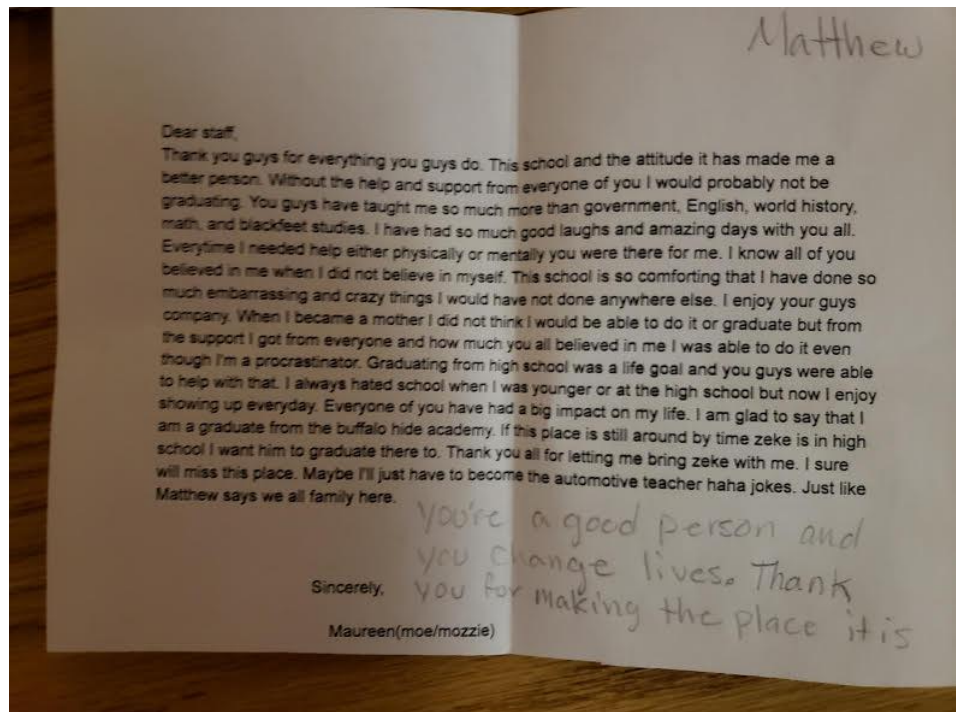 Matthew
Dear staff,
Thank you guys for everything you guys do. This school and the attitude it has made me a
better person. Without the help and support from everyone of you I would probably not be
graduating. You guys have taught me so much more than government, English, world history,
math, and blackfeet studies. I have had so much good laughs and amazing days with you all.
Everytime I needed help either physically or mentally you were there for me. I know all of you
believed in me when I did not believe in myself. This school is so comforting that I have done so
much embarrassing and crazy things I would have not done anywhere else. I enjoy your guys
company. When I became a mother I did not think I would be able to do it or graduate but from
the support I got from everyone and how much you all believed in me I was able to do it even
though I'm a procrastinator. Graduating from high school was a life goal and you guys were able
to help with that. I always hated school when I was younger or at the high school but now I enjoy
showing up everyday. Everyone of you have had a big impact on my life. I am glad to say that I
am a graduate from the buffalo hide academy. If this place is still around by time zeke is in high
school I want him to graduate there to. Thank you all for letting me bring zeke with me. I sure
will miss this place. Maybe I'll just have to become the automotive teacher haha jokes. Just like
Matthew says we all family here.
you're a good person and
you change lives. Thank
you for making the place it is
Sincerely,
Maureen(moe/mozzie)